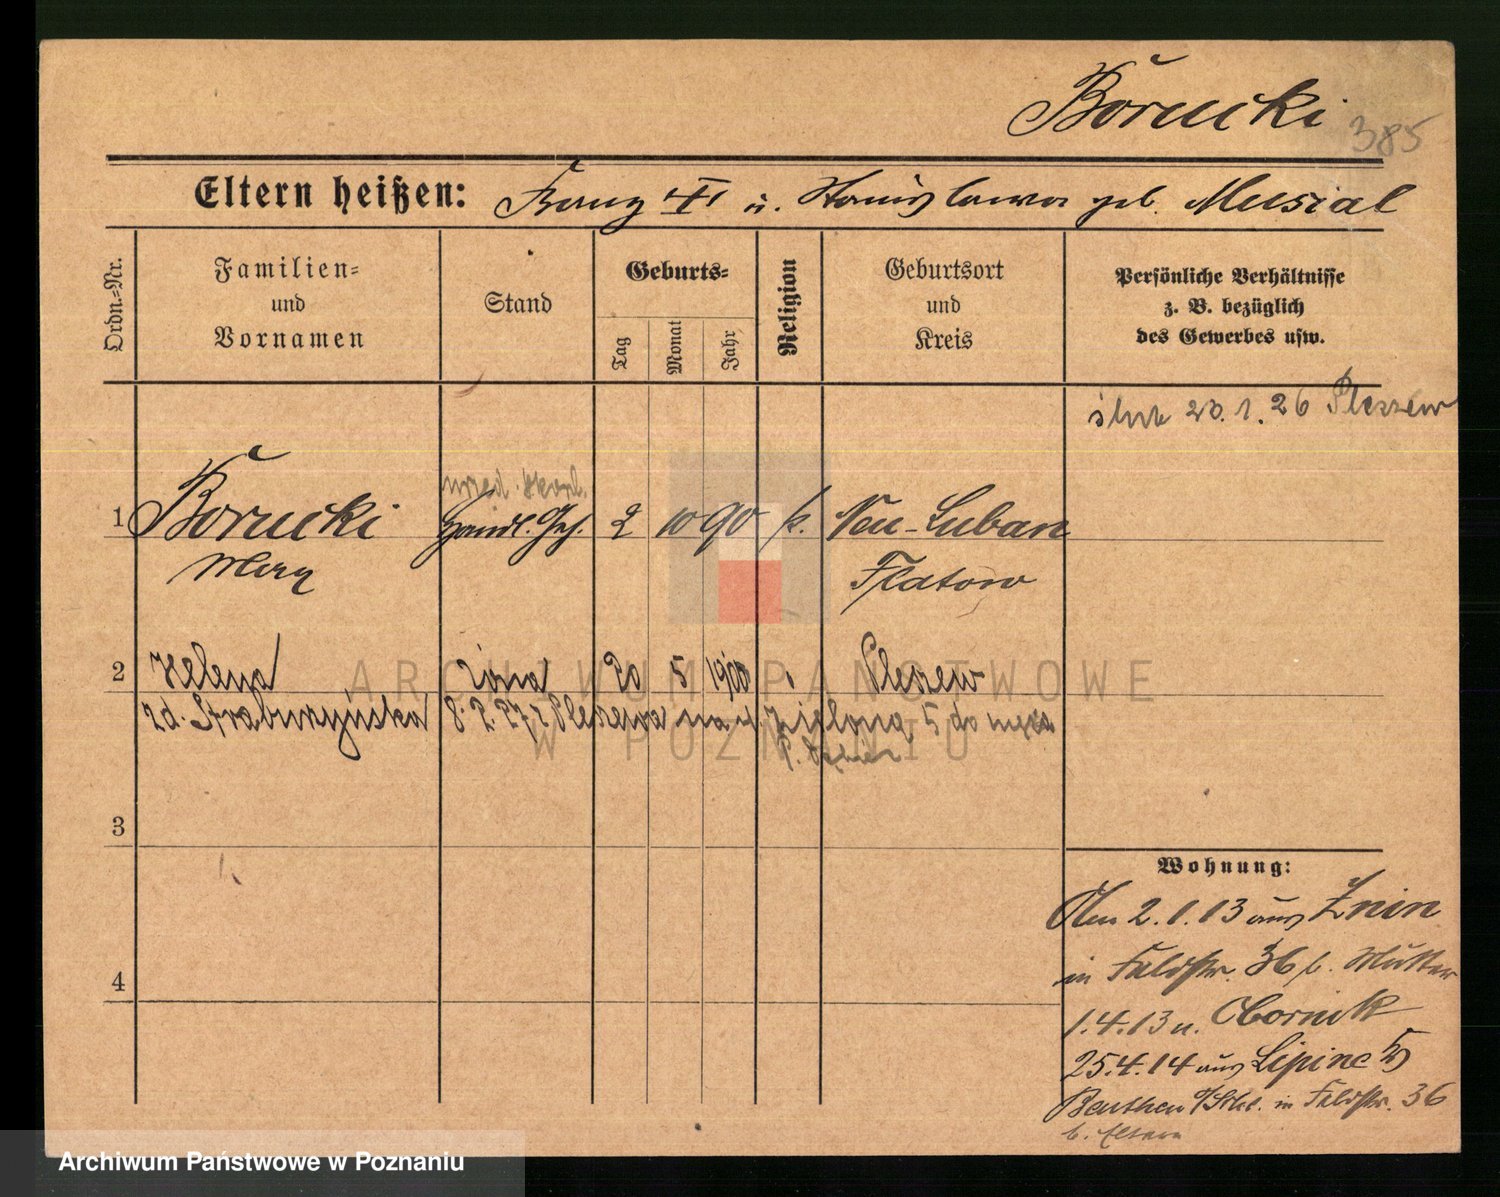 Borucki
385
Eltern heißen: Franz u. Stanislawa geb. Musial
Ordn.-Nr.
Familien- und Vornamen
Stand
Geburts-
Tag
Monat
Jahr
Religion
Geburtsort und Kreis
Persönliche Verhältnisse
z. B. bezüglich
des Gewerbes usw.
ślub 23.1.26 Pleszew
1 Borucki Handl. Geh. 2 10 90 k. Neu-Luban
Max Flatow
2 Helena żona 20 5 1900 Pleszew
zd. Straburzyńska 8.2.27 z Pleszewa na ul. Zieloną 5 do męża
3
4
Wohnung:
Den 2.1.13 aus Żnin
in Feldstr. 36 b. Mutter
1.4.13 n. Obornik
25.4.14 aus Lipine
Beuthen o/Schl. in Feldstr. 36
b. Eltern
ARCHIWUM PAŃSTWOWE
W POZNANIU
Archiwum Państwowe w Poznaniu